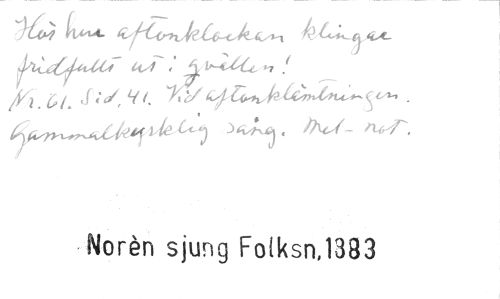 Hör hur aftonklockan klingar
fridfullt ut i qvällen!
Nr. 61. Sid. 41. Vid aftonklämtningen.
Gammalkyrklig sång. Mel-not.
Norèn sjung Folksn,1883